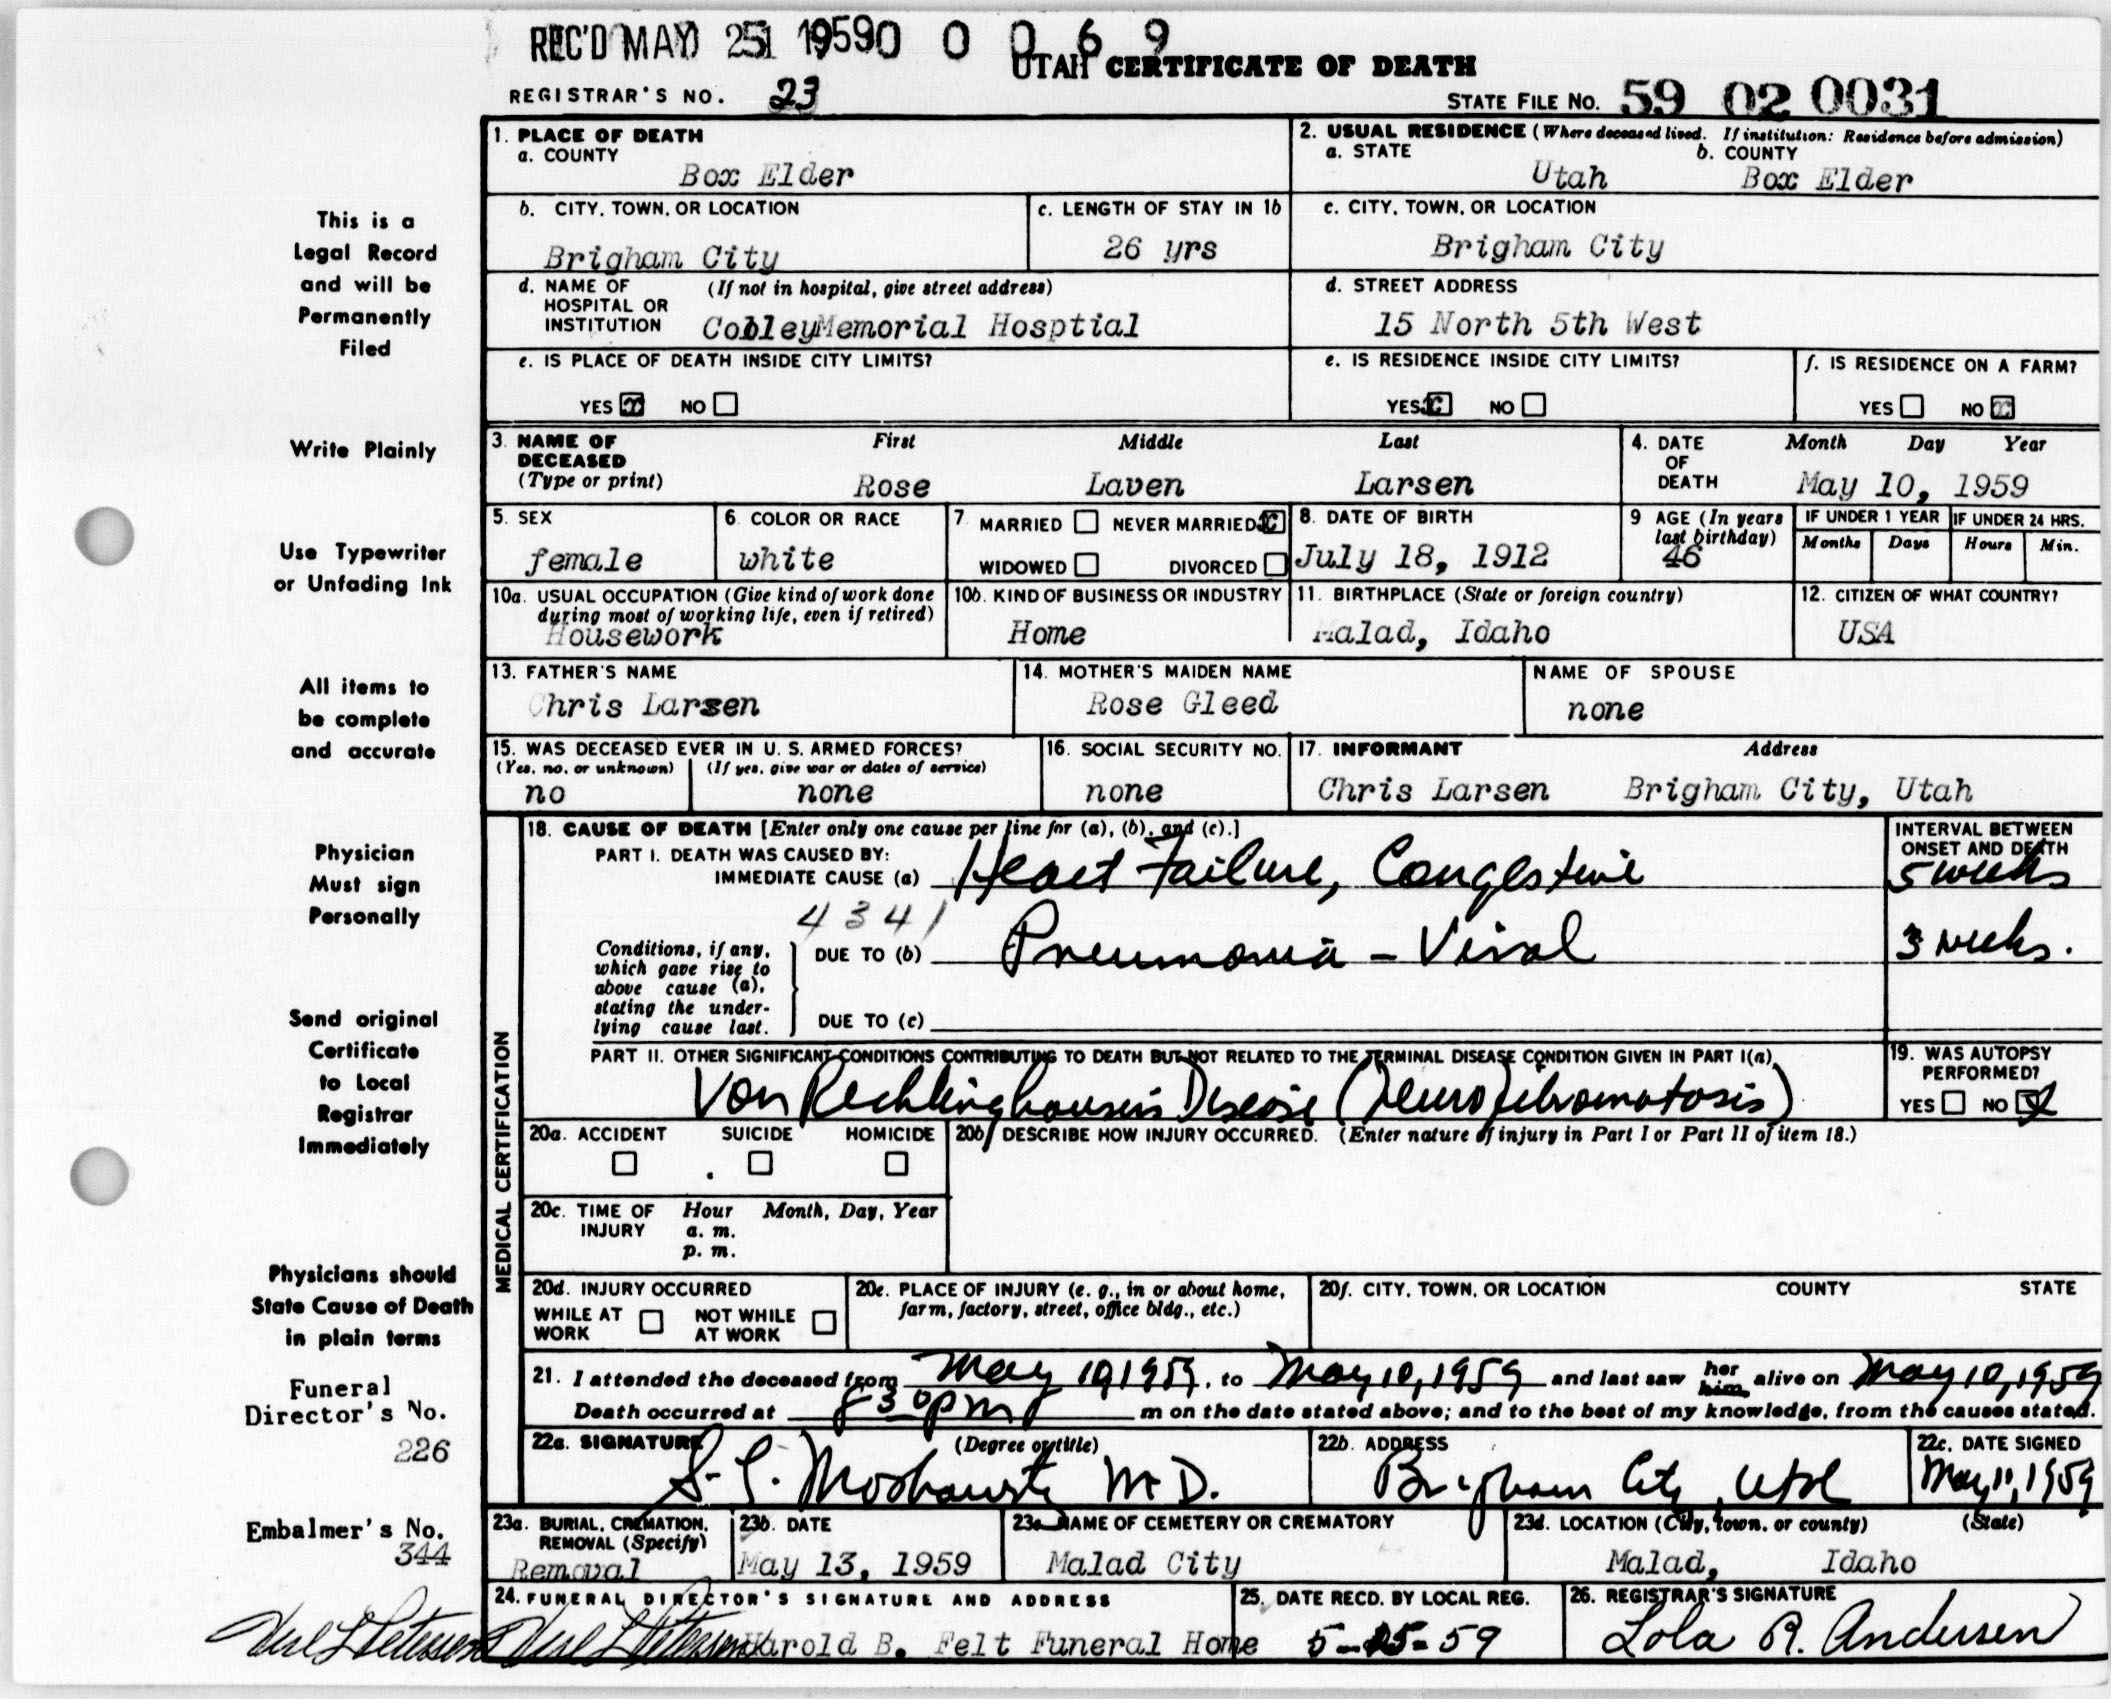 REC'D MAY 25 1959 0 0 0 6 9
UTAH CERTIFICATE OF DEATH
REGISTRAR'S NO. 23
STATE FILE NO. 59 02 0031
1. PLACE OF DEATH
a. COUNTY
Box Elder
2. USUAL RESIDENCE (Where deceased lived. If institution: Residence before admission)
a. STATE b. COUNTY
Utah Box Elder
b. CITY, TOWN, OR LOCATION
Brigham City
c. LENGTH OF STAY IN 1b
26 yrs
c. CITY, TOWN, OR LOCATION
Brigham City
d. NAME OF (If not in hospital, give street address)
HOSPITAL OR
INSTITUTION Memorial Hosptial
d. STREET ADDRESS
15 North 5th West
e. IS PLACE OF DEATH INSIDE CITY LIMITS?
YES x NO
e. IS RESIDENCE INSIDE CITY LIMITS?
YES x NO
f. IS RESIDENCE ON A FARM?
YES NO x
3. NAME OF First Middle Last
DECEASED
(Type or print) Rose Laven Larsen
4. DATE Month Day Year
OF
DEATH May 10, 1959
5. SEX
female
6. COLOR OR RACE
white
7. MARRIED NEVER MARRIED x
WIDOWED DIVORCED
8. DATE OF BIRTH
July 18, 1912
9 AGE (In years
last birthday)
46
IF UNDER 1 YEAR IF UNDER 24 HRS.
Months Days Hours Min.
10a. USUAL OCCUPATION (Give kind of work done
during most of working life, even if retired)
Housework
10b. KIND OF BUSINESS OR INDUSTRY
Home
11. BIRTHPLACE (State or foreign country)
Malad, Idaho
12. CITIZEN OF WHAT COUNTRY?
USA
13. FATHER'S NAME
Chris Larsen
14. MOTHER'S MAIDEN NAME
Rose Gleed
NAME OF SPOUSE
none
15. WAS DECEASED EVER IN U. S. ARMED FORCES?
(Yes, no, or unknown) (If yes, give war or dates of service)
no none
16. SOCIAL SECURITY NO.
none
17. INFORMANT Address
Chris Larsen Brigham City, Utah
MEDICAL CERTIFICATION
18. CAUSE OF DEATH [Enter only one cause per line for (a), (b), and (c).]
INTERVAL BETWEEN
ONSET AND DEATH
PART I. DEATH WAS CAUSED BY:
IMMEDIATE CAUSE (a) Heart Failure, Congestive 5 weeks
4 3 4 1
Conditions, if any,
which gave rise to
above cause (a),
stating the under-
lying cause last.
DUE TO (b) Pneumonia - Viral 3 weeks.
DUE TO (c)
PART II. OTHER SIGNIFICANT CONDITIONS CONTRIBUTING TO DEATH BUT NOT RELATED TO THE TERMINAL DISEASE CONDITION GIVEN IN PART I(a)
Von Recklinghausen's Disease (Neurofibromatosis)
19. WAS AUTOPSY
PERFORMED?
YES NO x
20a. ACCIDENT SUICIDE HOMICIDE
20b. DESCRIBE HOW INJURY OCCURRED. (Enter nature of injury in Part I or Part II of item 18.)
20c. TIME OF Hour Month, Day, Year
INJURY a. m.
p. m.
20d. INJURY OCCURRED
WHILE AT WORK NOT WHILE AT WORK
20e. PLACE OF INJURY (e. g., in or about home,
farm, factory, street, office bldg., etc.)
20f. CITY, TOWN, OR LOCATION COUNTY STATE
21. I attended the deceased from May 10, 1959, to May 10, 1959 and last saw her him alive on May 10, 1959
Death occurred at 8 30 pm m on the date stated above; and to the best of my knowledge, from the causes stated.
22a. SIGNATURE (Degree or title)
M.D.
22b. ADDRESS
Brigham City, Utah
22c. DATE SIGNED
May 11, 1959
23a. BURIAL, CREMATION,
REMOVAL (Specify)
Removal
23b. DATE
May 13, 1959
23c. NAME OF CEMETERY OR CREMATORY
Malad City
23d. LOCATION (City, town, or county) (State)
Malad, Idaho
24. FUNERAL DIRECTOR'S SIGNATURE AND ADDRESS
Harold B. Felt Funeral Home
25. DATE RECD. BY LOCAL REG.
5-15-59
26. REGISTRAR'S SIGNATURE
Lola R. Andersen
This is a
Legal Record
and will be
Permanently
Filed
Write Plainly
Use Typewriter
or Unfading Ink
All items to
be complete
and accurate
Physician
Must sign
Personally
Send original
Certificate
to Local
Registrar
Immediately
Physicians should
State Cause of Death
in plain terms
Funeral
Director's No.
226
Embalmer's No.
344